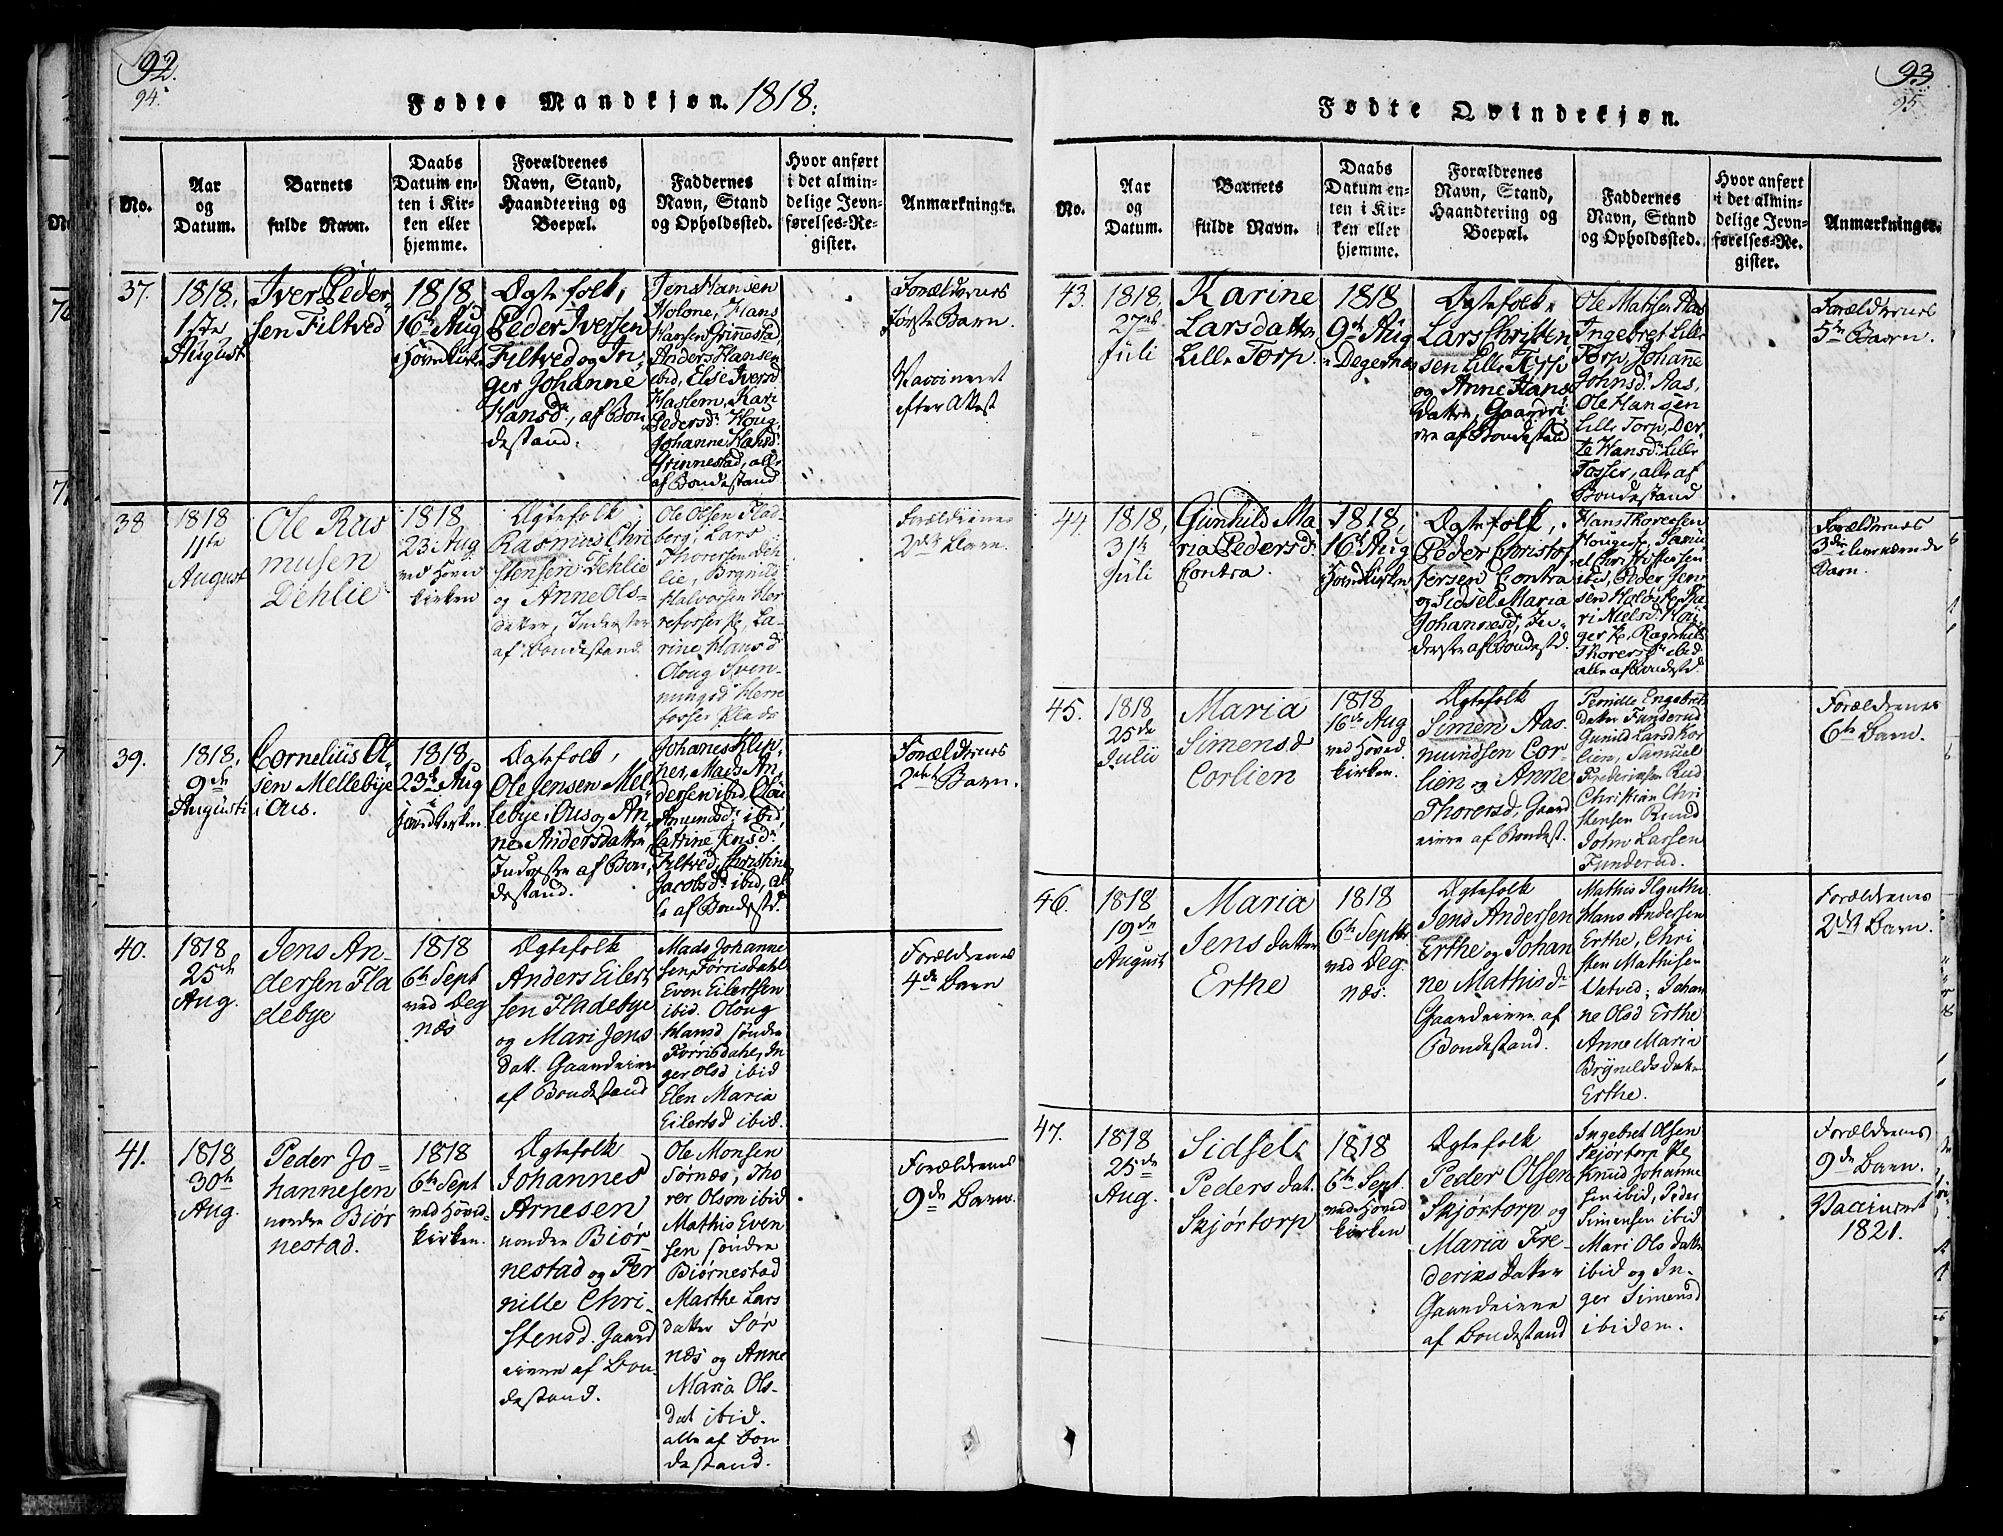 92.
94.
Fødte Mandkjøn. 1818.
No.
Aar
og
Datum.
Barnets
fulde Navn.
Daabs
Datum en-
ten i Kir-
ken eller
hjemme.
Forældrenes
Navn, Stand,
Haandtering og
Boepæl.
Faddernes
Navn, Stand
og Opholdssted.
Hvor anført
i det almin-
delige Jevn-
førelses-Re-
gister.
Anmærkninger.
37.
1818,
1ste
August
Iver Peder-
sen Filtved
1818,
16de Aug
i Hovedkirken
Ægtefolk,
Peder Iversen
Filtved og In-
ger Johanne
Hansd., af Bon-
destand.
Jens Hansen
Holone, Hans
Hansen Grinnestad,
Anders Hansen
ibid, Else Iversd
Haslem, Kari
Pedersd. Houg,
Johanne Hansd.
Grinnestad, alle
af Bondestand
Forældrenes
første Barn.
Vaccineret
efter Attest
38
1818
11te
August
Ole Ras
musen
Dehlie
1818
23 Aug
ved Hoved
kirken
Ægtefolk
Rasmus Chri
stensen Dehlie
og Anne Ols-
datter, Inderster
af Bondestand.
Ole Olsen Flad-
berg, Lars
Thoresen Deh
lie,
Halvorsen
La-
rine Hansd
Oloug Sven-
nungsd Herre
fosser Plads
Forældrenes
2det Barn.
39.
1818,
9de
Augusti
Cornelius Ol-
sen Mellebye
i Ous.
1818,
23de Aug
i Hovedkirken
Ægtefolk,
Ole Jensen Mel-
lebye i Ous og An-
ne Andersdatter,
Inderster af Bon-
destand.
Johanes Klip-
per, Mads An-
dersen ibid, Olou
Amundsd. ibid,
Catrine Jensd.
Filtved, Christine
Jacobsd. ibid, al-
le af Bondestd.
Forældrenes
2det Barn.
40.
1818
25de
Aug.
Jens An-
dersen Fla
debye
1818
6te Sept
ved Deg
næs
Ægtefolk
Anders Eilert
sen Fladebye
og Mari Jens
datt. Gaardeiere
af Bondestand
Mads Johanne
sen Førrisdahl
Even Eilertsen
ibid. Oloug
Hansd søndre
Førrisdahl, In
ger Olsd ibid
Elen Maria
Eilertsd ibid.
Forældrenes
4de Barn
41.
1818
30te
Aug.
Peder Jo-
hannesen
nordre Biør
nestad.
1818
6te Sept
ved Hoved-
kirken.
Ægtefolk
Johannes
Arnesen
nordre Biør-
nestad og Per
nille Chri-
stensd. Gaard
eiere af Bon-
destand.
Ole Monsen
Sørnæs, Tho
rer Olson ibid
Mathis Even
sen søndre
Biørnestad
Marthe Lars
datter Sør
næs og Anne
Maria Ols-
dat ibid.
alle af Bon
destand.
Forældrenes
9de Barn.
93
95
Fødte Qvindekjøn.
No.
Aar
og
Datum.
Barnets
fulde Navn.
Daabs
Datum en-
ten i Kir-
ken eller
hjemme.
Forældrenes
Navn, Stand,
Haandtering og
Boepæl.
Faddernes
Navn, Stand
og Opholdssted.
Hvor anført
i det almin-
delige Jevn-
førelses-Re-
gister.
Anmærkninger.
43.
1818,
27de
Juli
Karine
Larsdatter
Lille Torp.
1818
9de Aug
i Degernæs
Ægtefolk
Lars Christen
sen Lille Torp
og Anne Hans
datter, Gaardei
ere af Bondestand
Ole Mathisen Aas
Ingebret Lille
Torp, Johanne
Johnsd. Aas,
Ole Hansen
Lille Torp, Der
te Hansd. Lille
Tosser, alle af
Bondestand
Forældrenes
5te Barn.
44.
1818,
31te
Juli
Gunhild Ma
ria Pedersd.
Contra.
1818,
16de Aug
i Hovedkirken
Ægtefolk,
Peder Christof
fersen Contra
og Sidsel Maria
Johannesd, In-
derster af Bondestd.
Hans Thoresen
Samu
el Christoffersen
ibid, Peder Jen
sen
ri Nielsd.
Ragnhild
Thorersd ibid
alle af Bondestd.
Forældrenes
3die levende
Barn.
45.
1818
25de
Julii
Maria
Simensd
Corlien
1818
16de Aug
ved Hoved
kirken.
Ægtefolk
Simen Aas
mundsen Cor
lien og Anne
Thorersd. Gaard
eiere af Bondest.
Pernille Engebrets
datter Funderud
Gunild Larsd Kor
lien, Samuel
Frederiksen Rud
Christian Chri
stensen Ruud
John Larsen
Funderud.
Forældrenes
6te Barn.
46.
1818
19de
August
Maria
Jensdatter
Erthe
1818
6te Septbr
ved Deg
næs.
Ægtefolk
Jens Andersen
Erthe og Johan
ne Mathisd.
Gaardeiere af
Bondestand.
Mathis
Hans Andersen
Erthe, Chri
sten Mathisen
Johan
ne Olsd Erthe
Anne Maria
Brynildsdatter
Erthe.
Forældrenes
2det Barn.
47.
1818
25de
Aug.
Sidsel
Pedersdat.
Skjørtorp
1818
6te Sept.
ved Hoved
kirken
Ægtefolk
Peder Olsen
Skjørtorp og
Maria Fre-
deriksdatter
Gaardeiere
af Bondestand
Ingebret Olsen
Skjørtorp
Knud Johanne
sen ibid, Peder
Simensen ibid
Mari Olsdatter
ibid og In-
ger Simensd
ibidem.
Forældrenes
9de Barn.
Vaccineret
1821.